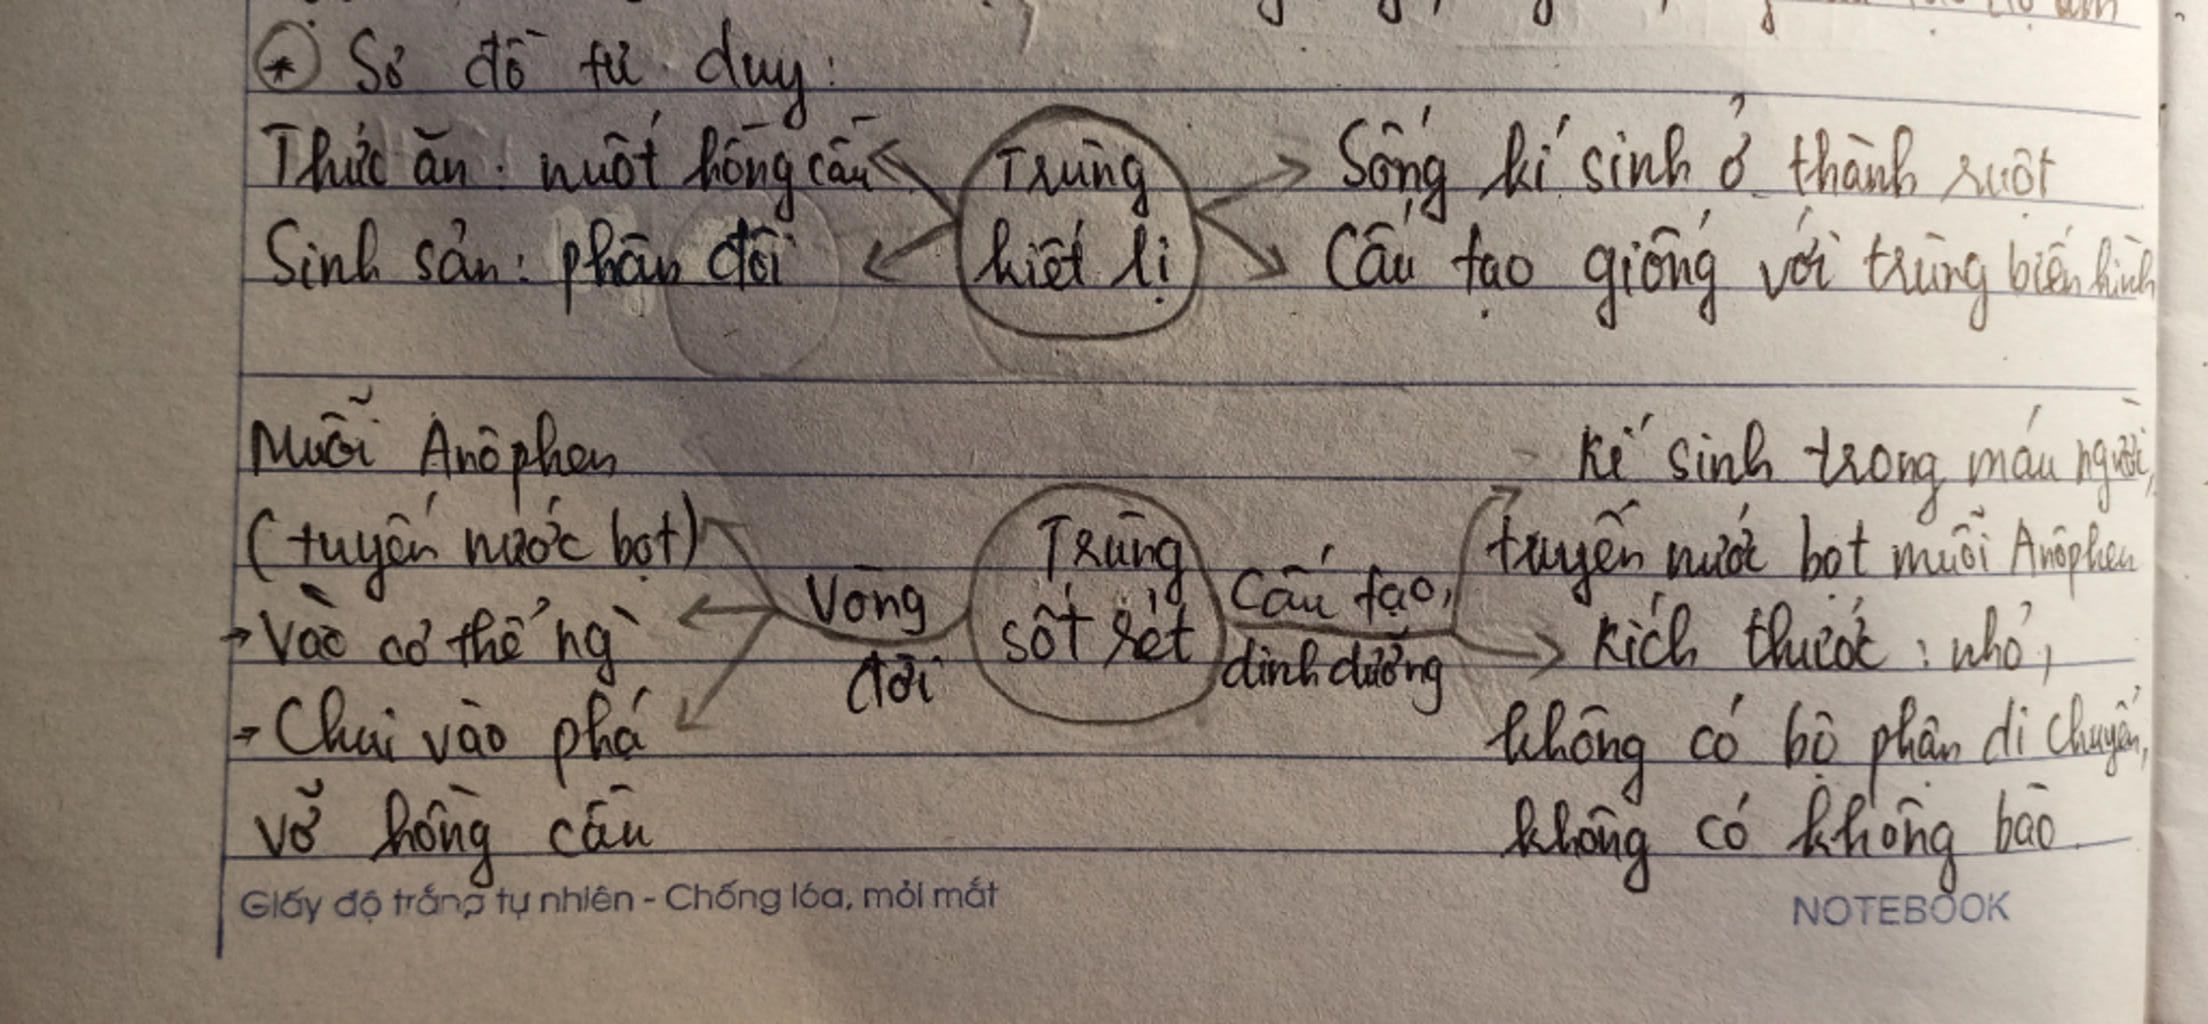 * Sơ đồ tư duy:
Thức ăn: nuốt hồng cầu
Sinh sản: phân đôi
Trùng
kiết lị
Sống kí sinh ở thành ruột
Cấu tạo giống với trùng biến hình
Muỗi Anôphen
(tuyến nước bọt)
→ Vào cơ thể ng`
→ Chui vào phá
vỡ hồng cầu
Vòng
đời
Trùng
sốt rét
Cấu tạo,
dinh dưỡng
Kí sinh trong máu người,
tuyến nước bọt muỗi Anôphen
Kích thước: nhỏ,
không có bộ phận di chuyển,
không có không bào
Giấy độ trắng tự nhiên - Chống lóa, mỏi mắt
NOTEBOOK